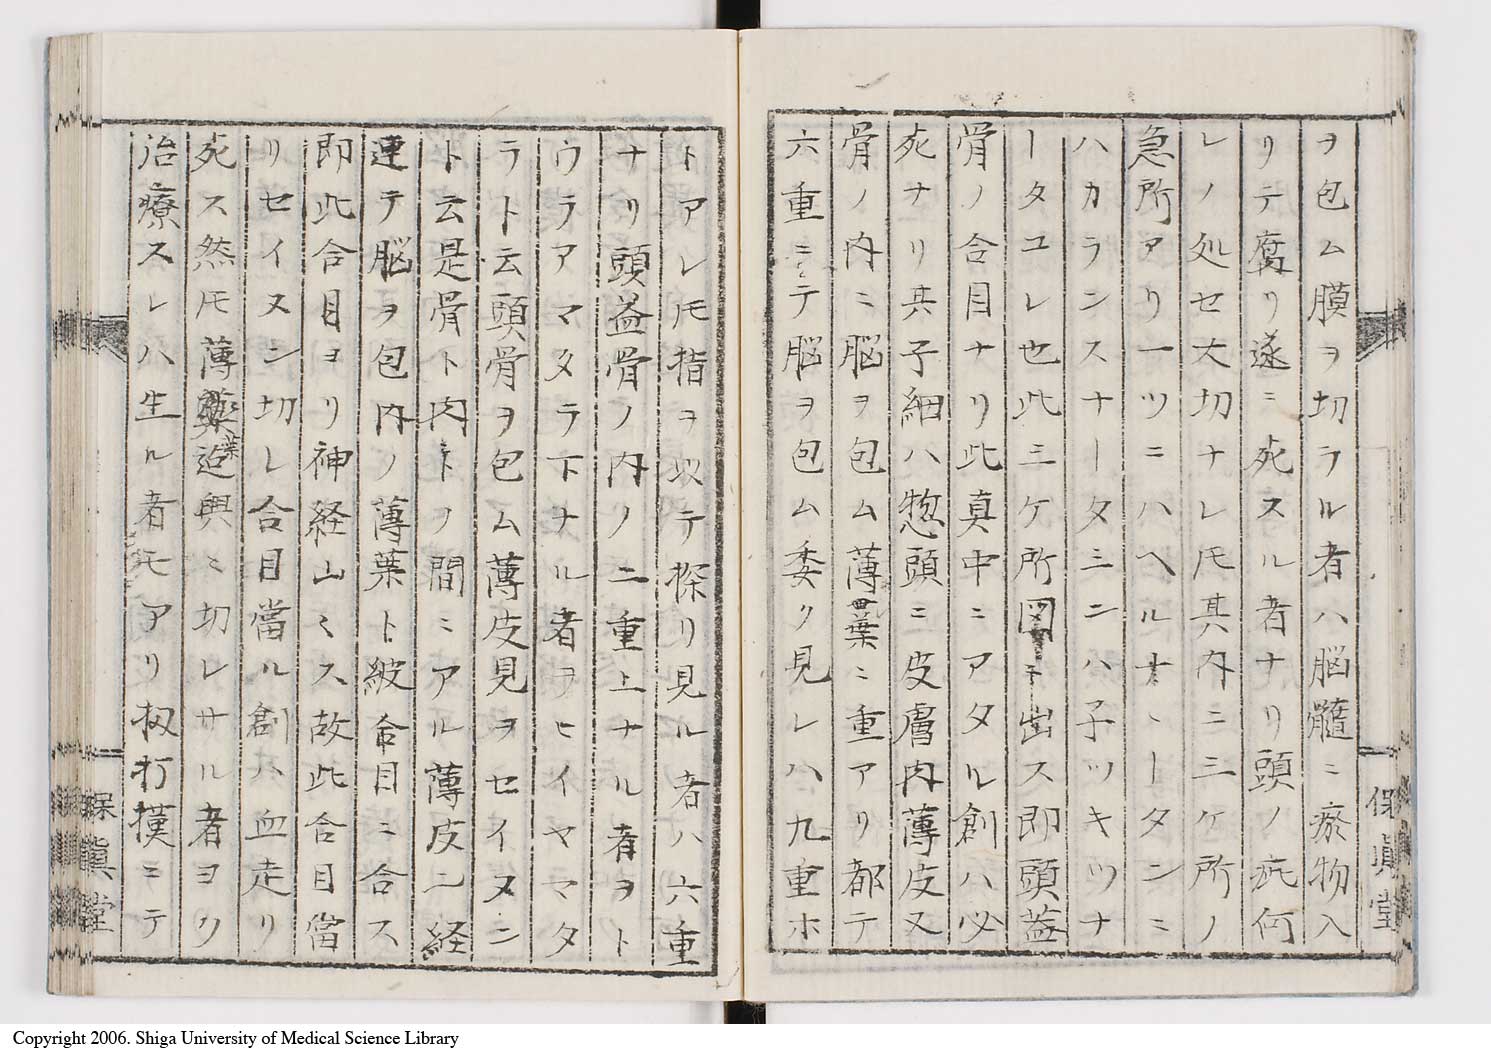 ヲ包ム膜ヲ切ラル者ハ脳髄ニ瘀物入
リテ腐リ遂ニ死スル者ナリ頭ノ疵何
レノ処セ大切ナレ𪜈其内ニ三ケ所ノ
急所アリ一ツニハヘルナヽータンミ
ハカランスナータミニハ子ツキツナ
ータユレ也此三ケ所図ニ出ス即頭蓋
骨ノ合目ナリ此真中ニアタル創ハ必
死ナリ其子細ハ惣頭ニ皮膚内薄皮又
骨ノ内ミ脳ヲ包ム薄葉ミ四重アリ都テ
六重ニテ脳ヲ包ム委ク見レハ九重ホ
トアレ𪜈指ヲ以テ探リ見ル者ハ六重
ナリ頭蓋骨ノ内ノ二重上ナル者ヲト
ウラアマタラ下ナル者ヲヒイヤマタ
ラト云頭骨ヲ包ム薄皮見ヲセイヌン
ト云是骨ト肉トノ間ミアル薄皮ニ経
連テ脳ヲ包内ノ薄葉ト紋合目ニ合ス
即此合目ヨリ神経山ミス故此合目當
リセイヌン切レ合目當ル創ハ血走リ
死ス然𪜈薄葉迠興ミ切レサル者ヨク
治療スレハ生ル者モアリ扨打撲ニテ
保眞堂
保眞堂
Copyright 2006. Shiga University of Medical Science Library